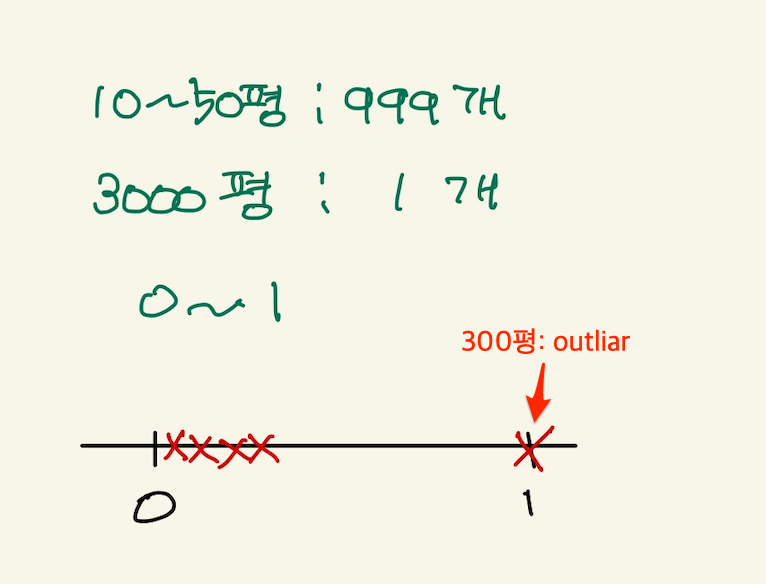 10~50평 : 999개
3000평 : 1개
0~1
300평: outliar
0 1